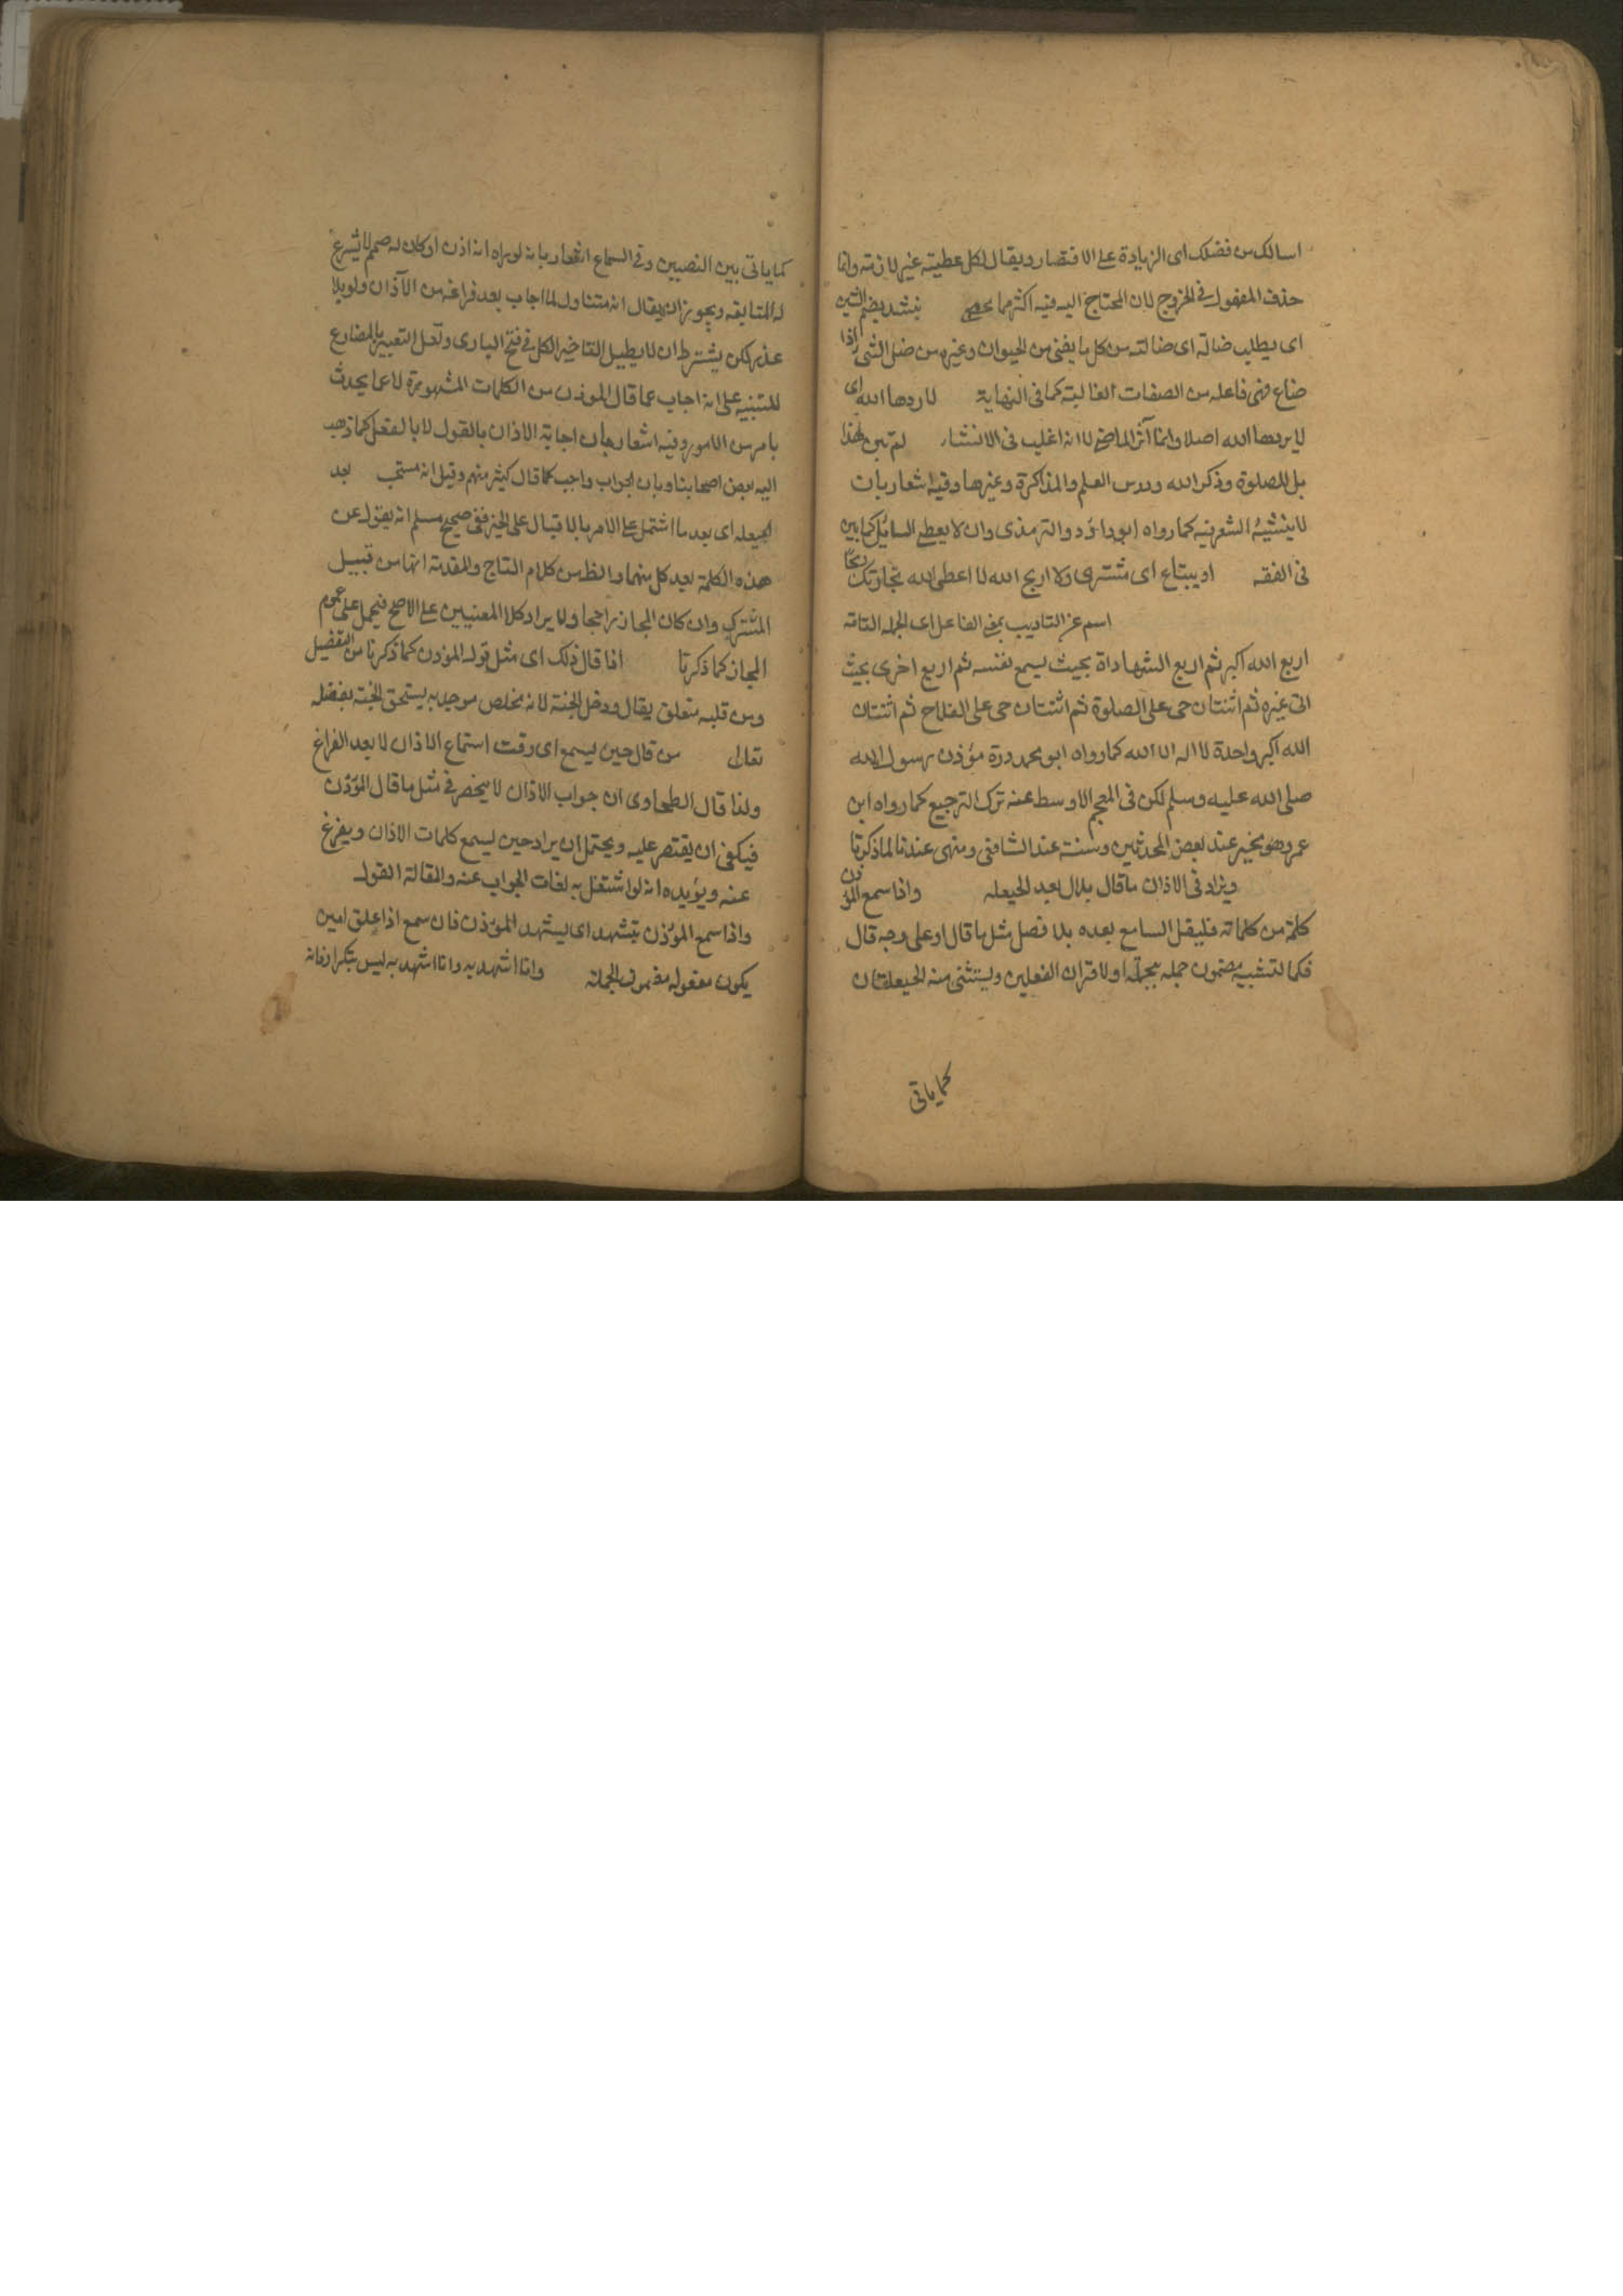 اسالك من فضلك اى الزيادة على الاقتصار ويقال لكل عطية غير لازمة وانما
حذف المفعول فى الخروج لان المحتاج اليه فيه اكثر مما يحصى ينشد بضم الشين
اى يطلب ضالة اى ضالته من كل ما يفنى من الحيوان وغيره من ضل الشى اذا
ضاع فهى فاعله من الصفات الغالبة كما فى النهاية لا ردها الله اى
لا يردها الله اصلا وانما آثر الماضى لا انه اغلب فى الانشاء لم تبن لهذا
بل للصلوة وذكر الله ودرس العلم والمذاكرة وغيرها وفيه اشعار بان
لا ينشئ الشعر فيه كما رواه ابو داؤد والترمذى وان لا يعطى السايل كما بين
فى الفقه او يبتاع اى مشترى ولا اربح الله لا اعطى الله تجارتك ربحا
اسم عز التاديب بمعنى الفاعل اى الجملة التامة
اربع الله اكبر ثم اربع الشهاداة بحيث يسمع نفسه ثم اربع اخرى بحيث
اتى غيره ثم اثنتان حى على الصلوة ثم اثنتان حى على الفلاح ثم اثنتان
الله اكبر واحدة لا اله الا الله كما رواه ابو محمدورة مؤذن رسول الله
صلى الله عليه وسلم لكن فى المعجم الاوسط عنه ترك الترجيع كما رواه ابن
عمر وهو بخير عند بعض المحدثين وسنة عند الشافعى ومنهى عندنا لما ذكرنا
ويزاد فى الاذان ما قال بلال بعد الحيعله واذا سمع المؤذن
كلمة من كلماته فليقل السامع بعده بلا فصل مثل ما قال او على وجه قال
فكما لتشبيه مضمون جملة بجملة او لاقتران الفعلين ويستثنى منه الحيعلتان
كما ياتى
كما ياتى بين النصيين وفى السماع اشعار بانه لو يراه انه اذن او كان له صمم لا يشرع
له المتابعة ويجوز ان يقال انه متناول لما اجاب بعد فراغه من الآذان ولو بلا
عذر لكن يشترط ان لا يطيل التاخير الكل فى فتح البارى ولعل التعبير بالمضارع
للتنبيه على انه اجاب عما قال الموذن من الكلمات المشهورة لا عما يحدث
بامر من الامور وفيه اشعار بان اجابة الاذان بالقول لا بالفعل كما ذهب
اليه بعض اصحابنا وبان الجواب واجب كما قال كثير منهم وقيل انه مستحب بعد
الحيعله اى بعد ما اشتمل على الامر بالاقبال على الخير ففى صحيح مسلم انه يقول عن
هذه الكلمة بعد كل منهما والظ من كلام التاج والمقدمة انها من قبيل
المشترك وان كان المجاز راجحا ولا يراد كلا المعنيين على الاصح فيحمل على عموم
المجاز كما ذكرنا اذا قال ذلك اى مثل قول الموذن كما ذكرنا من التفضيل
ومن قلبه متعلق يقال ودخل الجنة لانه مخلص موحد به يستحق الجنة بفضله
تعالى من قال حين يسمع اى وقت استماع الاذان لا بعد الفراغ
ولذا قال الطحاوى ان جواب الاذان لا يخصر فى مثل ما قال المؤذن
فيكفى ان يقتصر عليه ويحتمل ان يراد حين يسمع كلمات الاذان ويفرغ
عنه ويؤيده انه لو اشتغل به لفات الجواب عنه والمقالة القول
واذا سمع المؤذن يتشهد اى يستشهد المؤذن فان سمع اذا علق امين
يكون مفعوله مضمون الجملة وانا اشهد به وانا اشهد به ليس بتكرار فانه